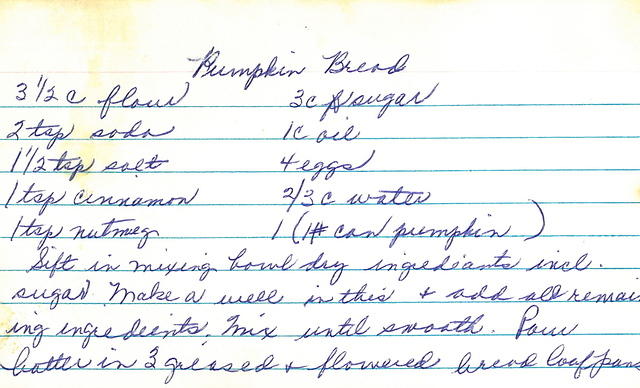 Pumpkin Bread
3 1/2 c flour 3c sugar
2 tsp soda 1c oil
1 1/2 tsp salt 4 eggs
1 tsp cinnamon 2/3 c water
1 tsp nutmeg 1 (1# can pumpkin)
Sift in mixing bowl dry ingrediants incl.
sugar. Make a well in this + add all remain
ing ingredients. Mix until smooth. Pour
batter in 3 greased + flowered bread loaf pans